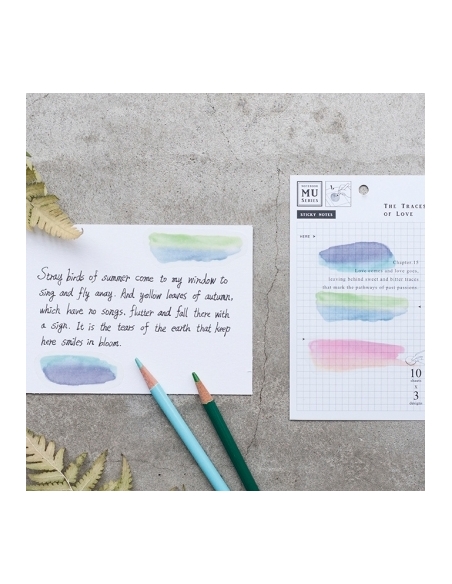 Stray birds of summer come to my window to
sing and fly away. And yellow leaves of autumn,
which have no songs, flutter and fall there with
a sign. It is the tears of the earth that keep
here smiles in bloom.
MU
SERIES
STICKY NOTES
THE TRACES
OF LOVE
Chapter 15
Love comes and love goes,
leaving behind sweet and bitter traces,
that mark the pathways of past passions.
10
sheets
x
3
designs